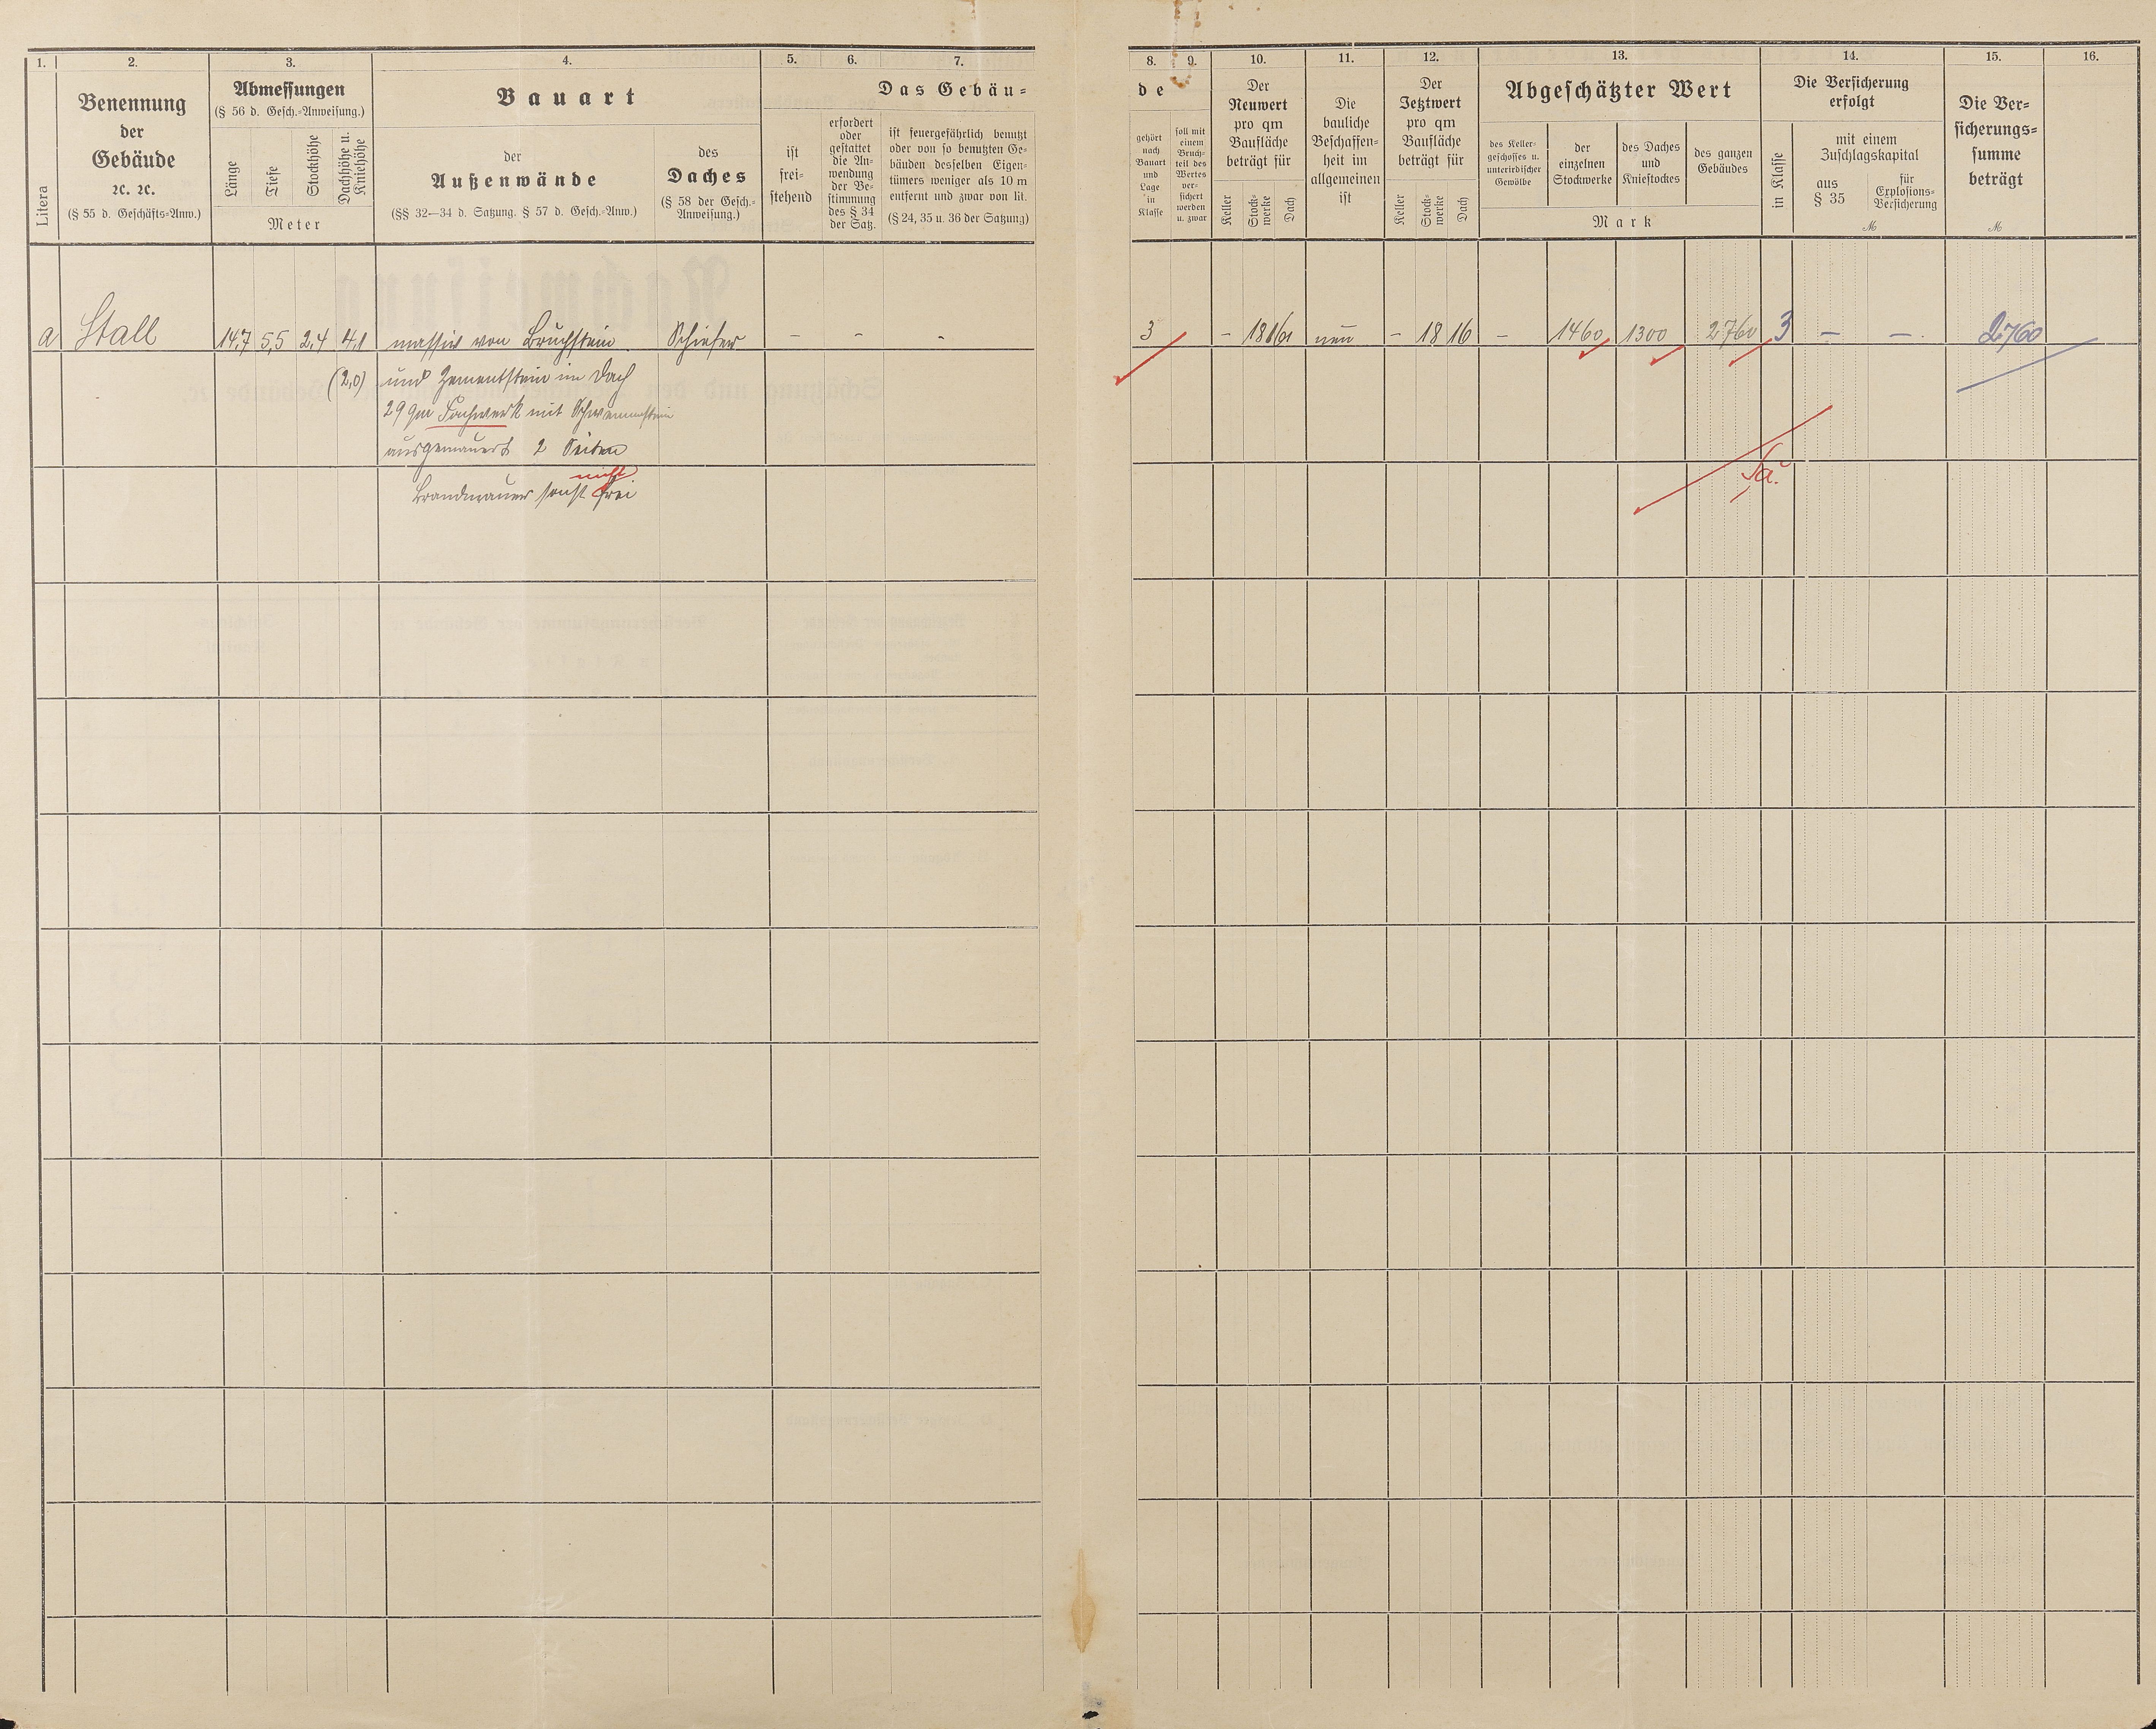 1.
2.
3.
4.
5.
6.
7.
8.
9.
10.
11.
12.
13.
14.
15.
16.
Litera
Benennung
der
Gebäude
ꝛc. ꝛc.
(§ 55 d. Geschäfts-Anw.)
Abmessungen
(§ 56 d. Gesch.-Anweisung.)
Länge
Tiefe
Stockhöhe
Dachhöhe u.
Kniehöhe
Meter
Bauart
der
Außenwände
(§§ 32—34 d. Satzung. § 57 d. Gesch.-Anw.)
des
Daches
(§ 58 der Gesch.-
Anweisung.)
Das Gebäu-
ist
frei-
stehend
erfordert
oder
gestattet
die An-
wendung
der Be-
stimmung
des § 34
der Satz.
ist feuergefährlich benutzt
oder von so benutzten Ge-
bäuden desselben Eigen-
tümers weniger als 10 m
entfernt und zwar von lit.
(§ 24, 35 u. 36 der Satzung)
de
gehört
nach
Bauart
und
Lage
in
Klasse
soll mit
einem
Bruch-
teil des
Wertes
ver-
sichert
werden
u. zwar
Der
Neuwert
pro qm
Baufläche
beträgt für
Keller
Stock-
werke
Dach
Die
bauliche
Beschaffen-
heit im
allgemeinen
ist
Der
Jetztwert
pro qm
Baufläche
beträgt für
Keller
Stock-
werke
Dach
Abgeschätzter Wert
des Keller-
geschosses u.
unterirdischer
Gewölbe
der
einzelnen
Stockwerke
des Daches
und
Kniestockes
des ganzen
Gebäudes
Mark
Die Versicherung
erfolgt
in Klasse
mit einem
Zuschlagskapital
aus
§ 35
für
Explosions-
Versicherung
ℳ
Die Ver-
sicherungs-
summe
beträgt
ℳ
a Stall 14,7 5,5 2,4 4,1 massiv von Bruchstein Schiefer – – –
(2,0) und Zementstein im Dach
29 qm Fachwerk mit Schwemmstein
ausgemauert 2 Seiten
nicht
Brandmauer sonst frei
3 – 18 16 neu – 18 16 – 1460 1300 2760 3 – – 2760